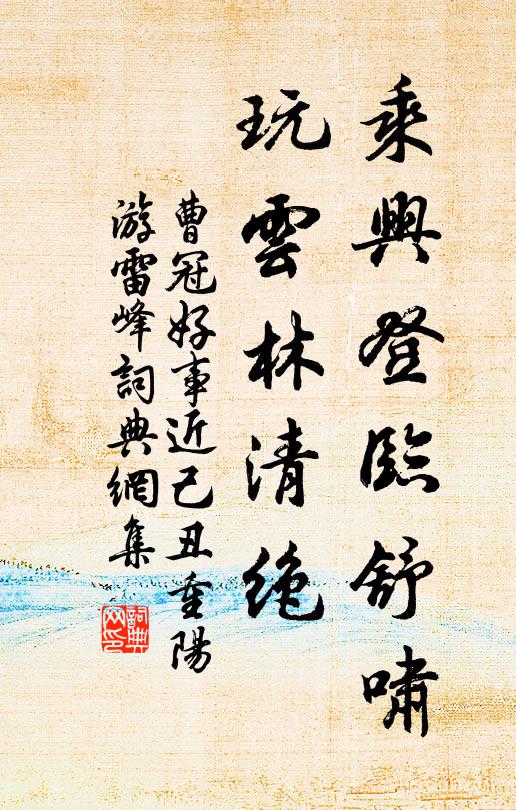 乘興登臨舒嘯
玩雲林清絶
曹冠好事近己丑重陽
游雷峰詞典網集
詞典网印